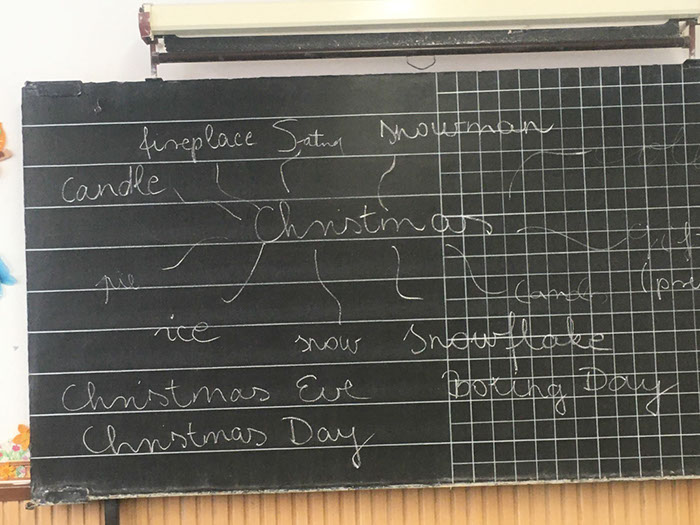 fireplace snowman
candle
Christmas
pie
ice snow snowflake
Christmas Eve Boxing Day
Christmas Day